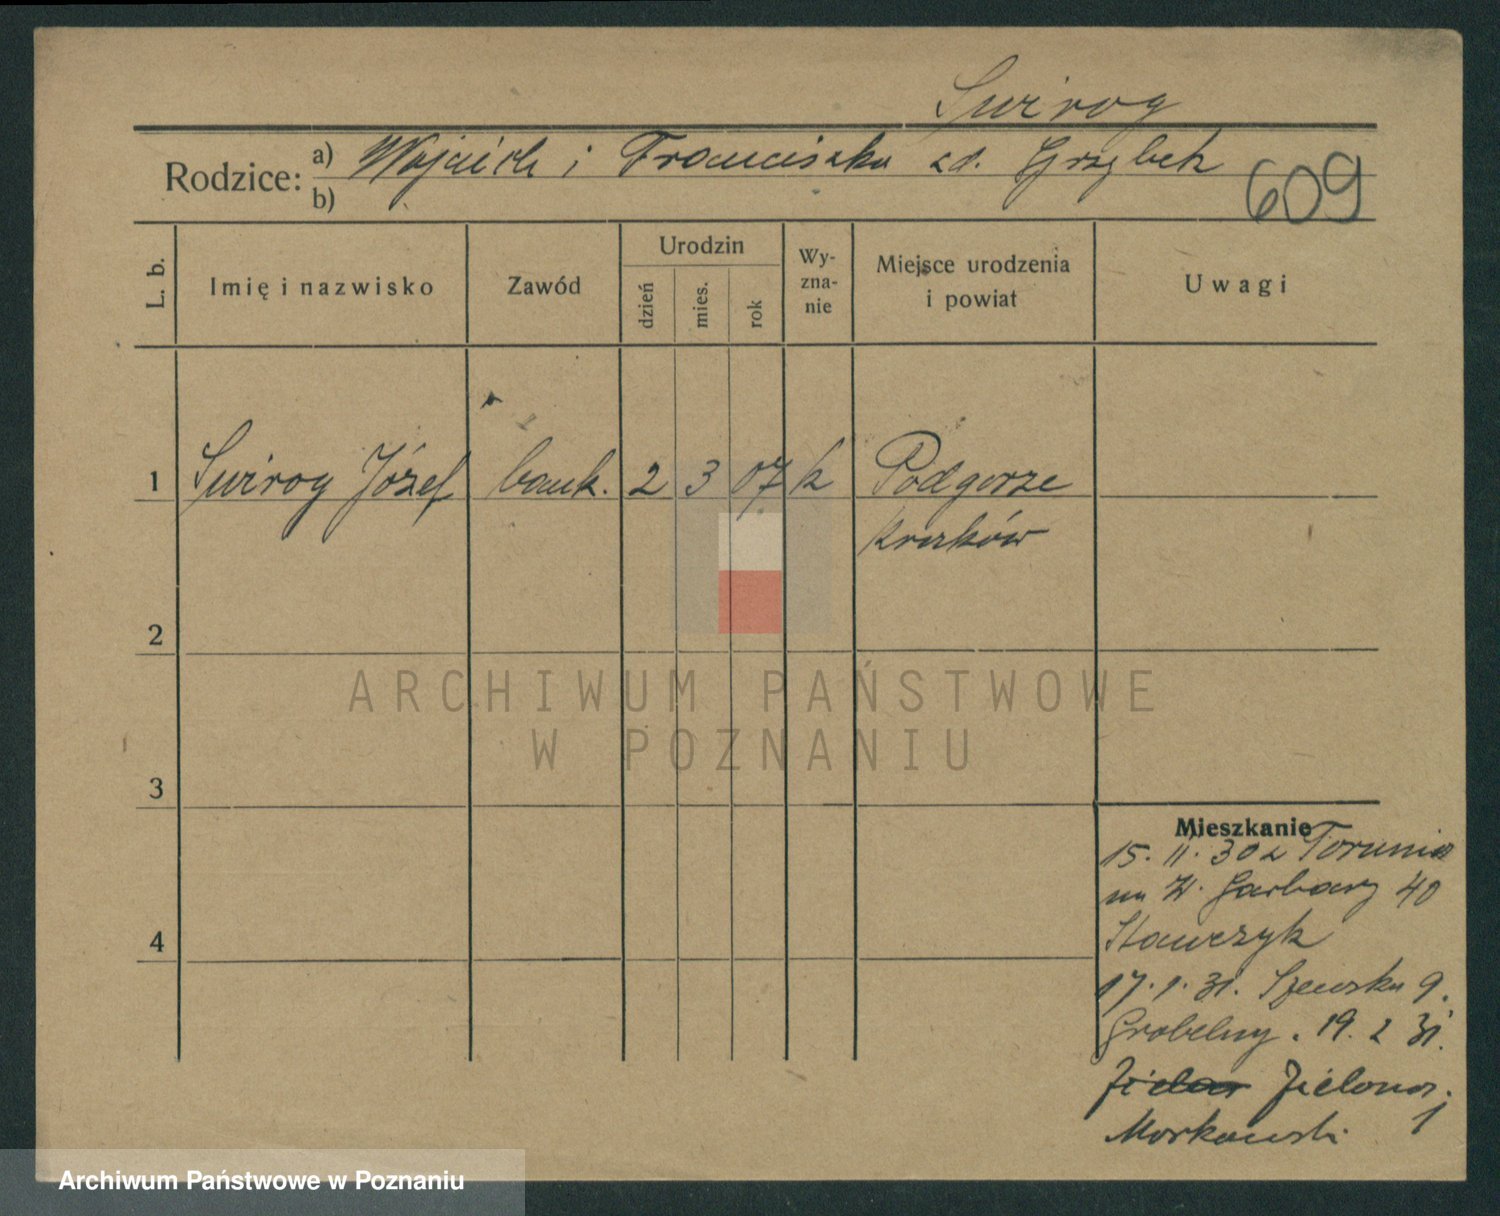 Swirog
Rodzice: a) Wojciech i Franciszka zd. Grzybek
b)
609
L. b.
Imię i nazwisko
Zawód
Urodzin
dzień
mies.
rok
Wy-
zna-
nie
Miejsce urodzenia
i powiat
Uwagi
1 Swirog Józef bank. 2 3 07 k Podgorze
Kraków
2
ARCHIWUM PAŃSTWOWE
W POZNANIU
3
Mieszkanie
15. 11. 30 z Torunia
na W. Garbary 40
Stawczyk
4
17. 1. 31. Szewska 9.
Grobelny. 19. 2 31.
Zielona.
Morkowski 1
Archiwum Państwowe w Poznaniu